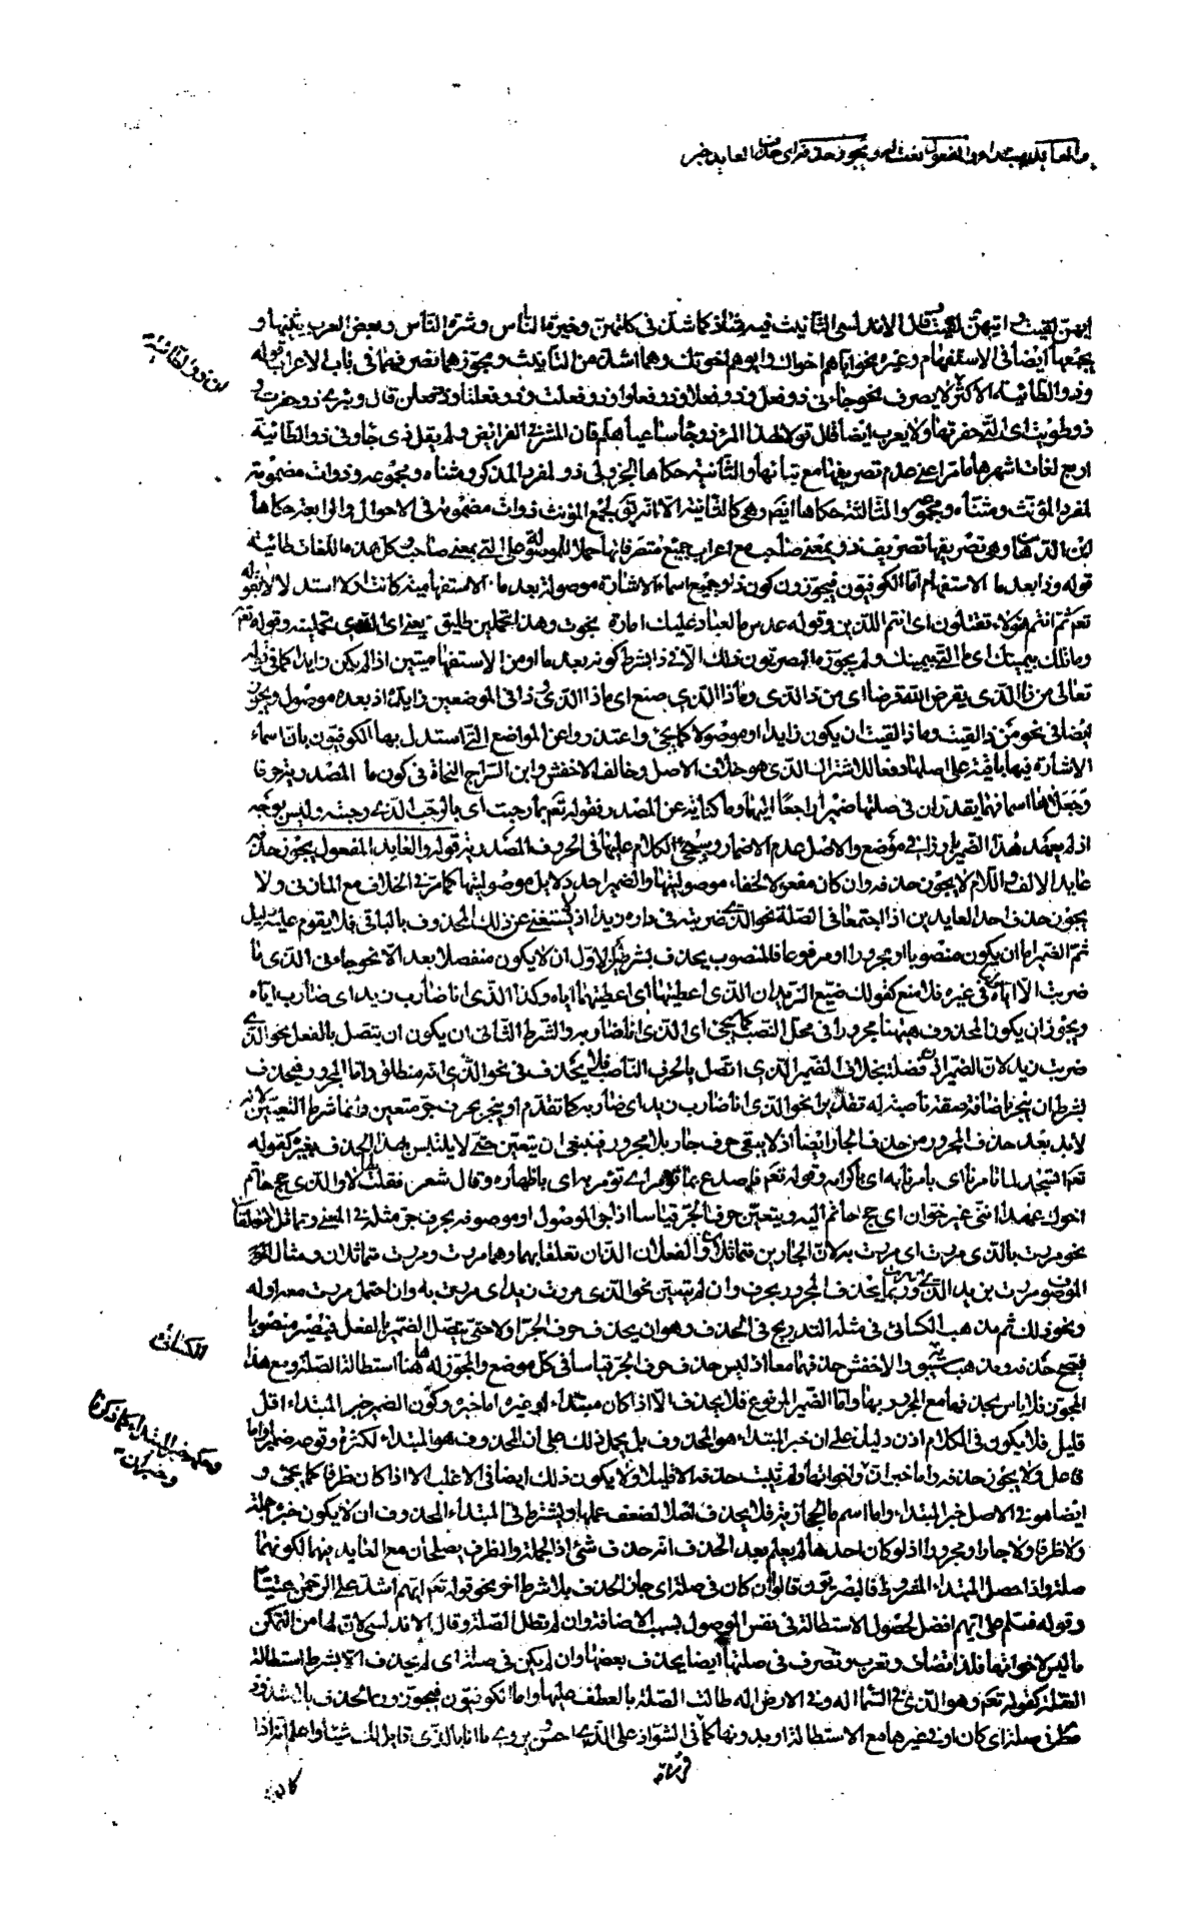 والعائد مبتدا والمفعول نعت له ويجوز حذفه اى حذف العايد خبر
ايهن لقيت وايتهن لقيت قال الاندلسى التأنيث فيه شاذ كما شذ فى كلتهن وخيرة الناس وشرة الناس وبعض العرب يثنيها و
يجمعها ايضا فى الاستفهام وغيره نحو اياهم اخواك وايوهم اخوتك وهما اشذ من التأنيث ويجوزهما نصر فهما فى باب الاعراب قوله
وذو الطائية الاكثر لا يصرف نحو جاءنى ذو فعل وذو فعلا وذو فعلوا وذو فعلت وذو فعلتا وذو فعلن قال وبئرى ذو حفرت و
ذو طويت اى التى حفرتها ولا يعرب ايضا قال قولا لهذا المرء ذو جاء ساعيا هلم فان المشرفى الفرائض ولم يقل ذى جاء وفى ذو الطائية
اربع لغات اشهرها ما مر اعنى عدم تصريفها مع بنائها والثانية حكاها الجزولى ذو لمفرد المذكر ومثناه ومجموعه وذوات مضمومة
لمفرد المؤنث ومثناه ومجموعه والثالثة حكاها ايضم وهى كالثانية الا انه يق لجمع المؤنث ذوات مضمومة فى الاحوال والرابعة حكاها
ابن الدهان وهى تصريفها تصريف ذو بمعنى صاحب مع اعراب جميع متصرفاتها حملا للموصولة على التى بمعنى صاحب وكل هذه اللغات طائية
قوله وذا بعد ما الاستفهام اما الكوفيون فيجوزون كون ذا وجميع اسماء الاشارة موصولة بعد ما الاستفهامية كانت او لا استدلالا بقوله
تعم ثم انتم هؤلاء تقتلون اى انتم الذين وقوله عدس ما لعباد عليك امارة نجوت وهذا تحملين طليق يعنى اى الذى تحملينه وقوله تعم
وما تلك بيمينك اى ما التى بيمينك ولم يجوزه البصريون ذلك الا فى ذا بشرط كونه بعد ما او من الاستفهاميتين اذا لم يكن زايدا كما فى قوله
تعالى من ذا الذى يقرض الله قرضا اى من ذا الذى وماذا الذى يصنع اى ماذا الذى وذا فى الموضعين زايدة اذ بعده موصول ويجوز
ايضا فى نحو من ذا لقيت وماذا لقيت ان يكون زايدا وموصولا كما يجئ واعتذروا عن المواضع التى استدل بها الكوفيون بان اسماء
الاشارة فيها باقية على اصلها دفعا للاشتراك الذى هو خلاف الاصل وخالف الاخفش وابن السراج النحاة فى كون ما المصدرية حرفا
وجعلاها اسما فهما يقدران فى صلتها ضميرا راجعا اليها وما كناية عن المصدر فقوله تعم بما رحبت اى بالرحب الذى رحبته وليس بوجه
اذ لم يعهد هذا الضمير بارزا فى موضع والاصل عدم الاضمار وسيجئ الكلام عليها فى الحروف المصدرية قوله والعايد المفعول يجوز حذفه
عايد الالف واللام لا يجوز حذفه وان كان مفعولا لخفاء موصوليتها والضمير احد دلايل موصوليتها كما مر فى الخلاف مع المازنى ولا
يجوز حذف احد العايدين اذا اجتمعا فى الصلة نحو الذى ضربته فى داره زيد اذ يستغنى عن ذلك المحذوف بالباقى فلا يقوم عليه دليل
ثم الضمير اما ان يكون منصوبا او مجرورا او مرفوعا فالمنصوب يحذف بشرطين الاول ان لا يكون منفصلا بعد الا نحو جاءنى الذى ما
ضربت الا اياه واما فى غيره فلا منع كقولك ضيع الزيدان الذى اعطيتهما اى اعطيتهما اياه وكذا الذى انا ضارب زيد اى ضارب اياه
ويجوز ان يكون المحذوف ههنا مجرورا فى محل النصب كما سيجئ اى الذى انا ضاربه والشرط الثانى ان يكون ان يتصل بالفعل نحو الذى
ضربت زيد لان الضمير اذن فضلة بخلاف الضمير الذى اتصل بالحرف الناصب فلا يحذف فى نحو الذى انه منطلق واما المجرور فيحذف
بشرط ان ينجر باضافة صفة ناصبة له تقديرا نحو الذى انا ضارب زيد اى ضاربه كما تقدم او ينجر بحرف جر متعين وانما شرط التعين لانه
لابد بعد حذف المجرور من حذف الجار ايضا اذ لا يبقى حرف جار بلا مجرور فينبغى ان يتعين حتى لا يلتبس بعد الحذف بغيره كقوله
تعم انسجد لما تأمرنا اى تأمرنا به اى باكرامه وقوله تعم فاصدع بما تؤمر اى تؤمر به اى باظهاره وقال شعر فقلت له لا والذى حج حاتم
اخونك عهدا اننى غير خوان اى حج حاتم اليه ويتعين حرف الجر قياسا اذا جر الموصول او موصوفه بحرف جر مثله فى المعنى وتماثل المتعلقان
نحو مررت بالذى مررت اى مررت به لان الجارين متماثلان والفعلان اللذان تعلقا بهما وهما مررت ومررت متماثلان ومثال
الموصوف مررت بزيد الذى مررت وربما يحذف المجرور بحرف وان لم يتعين نحو الذى مررت زيد اى مررت به وان احتمل مررت معه او له
ونحو ذلك ثم مذهب الكسائى فى مثله التدريج فى الحذف وهو ان يحذف حرف الجر اولا حتى يتصل الضمير بالفعل فيصير منصوبا
فيصح حذفه ومذهب سيبويه والاخفش حذفهما معا اذ ليس حذف حرف الجر قياسا فى كل موضع والمجوز له هنا استطالة الصلة ومع هذا
المجوز فلا باس بحذفهما مع المجرور بها واما الضمير المرفوع فلا يحذف الا اذا كان مبتداء او غيره اما خبره وكون الضمير خبر المبتداء اقل
قليل فلا يكون فى الكلام اذن دليل على ان خبر المبتداء هو المحذوف بل يحمل ذلك على ان المحذوف هو المبتداء لكثرة وقوعه ضميرا واما
فاعل ولا يجوز حذفه واما خبر ان واخواتها ولم يثبت حذفه الا قليلا ولا يكون ذلك ايضا فى الاغلب الا اذا كان ظرفا كما يجئ و
ايضا هو فى الاصل خبر المبتداء واما اسم ما الحجازية فلا يحذف اصلا لضعف عملها ويشترط فى المبتداء المحذوف ان لا يكون خبره جملة
ولا ظرفا ولا جارا ومجرورا اذ لو كان احدها لم يعلم بعد الحذف انه حذف شئ اذ الجملة والظرف يصلحان مع العايد فيهما لكونهما
صلة واذا حصل المبتداء المشروط فالبصريون قالوا ان كان فى صلة اى جاز الحذف بلا شرط اخر نحو قوله تعم ايهم اشد على الرحمن عتيا
وقوله فسلم على ايهم افضل لحصول الاستطالة فى نفس الموصول بسبب الاضافة وان لم تطل الصلة وقال الاندلسى لان لها من التمكن
ما ليس لاخواتها فلذا تضاف وتعرب وتصرف فى صلتها ايضا بحذف بعضها وان لم يكن فى صلة اى لم يحذف الا بشرط استطالة
الصلة كقوله تعم وهو الذى فى السماء اله وفى الارض اله طالت الصلة بالعطف عليها واما الكوفيون فيجوزون الحذف بلا شذوذ
مطلقا فى صلة اى كان او فى غيرها مع الاستطالة او بدونها كما فى الشواذ على الذى احسن ويروى ما انا بالذى قايل لك شيئا واعلم انه اذا
من ذو الطائية
للكسائى
وخبر كان
كان